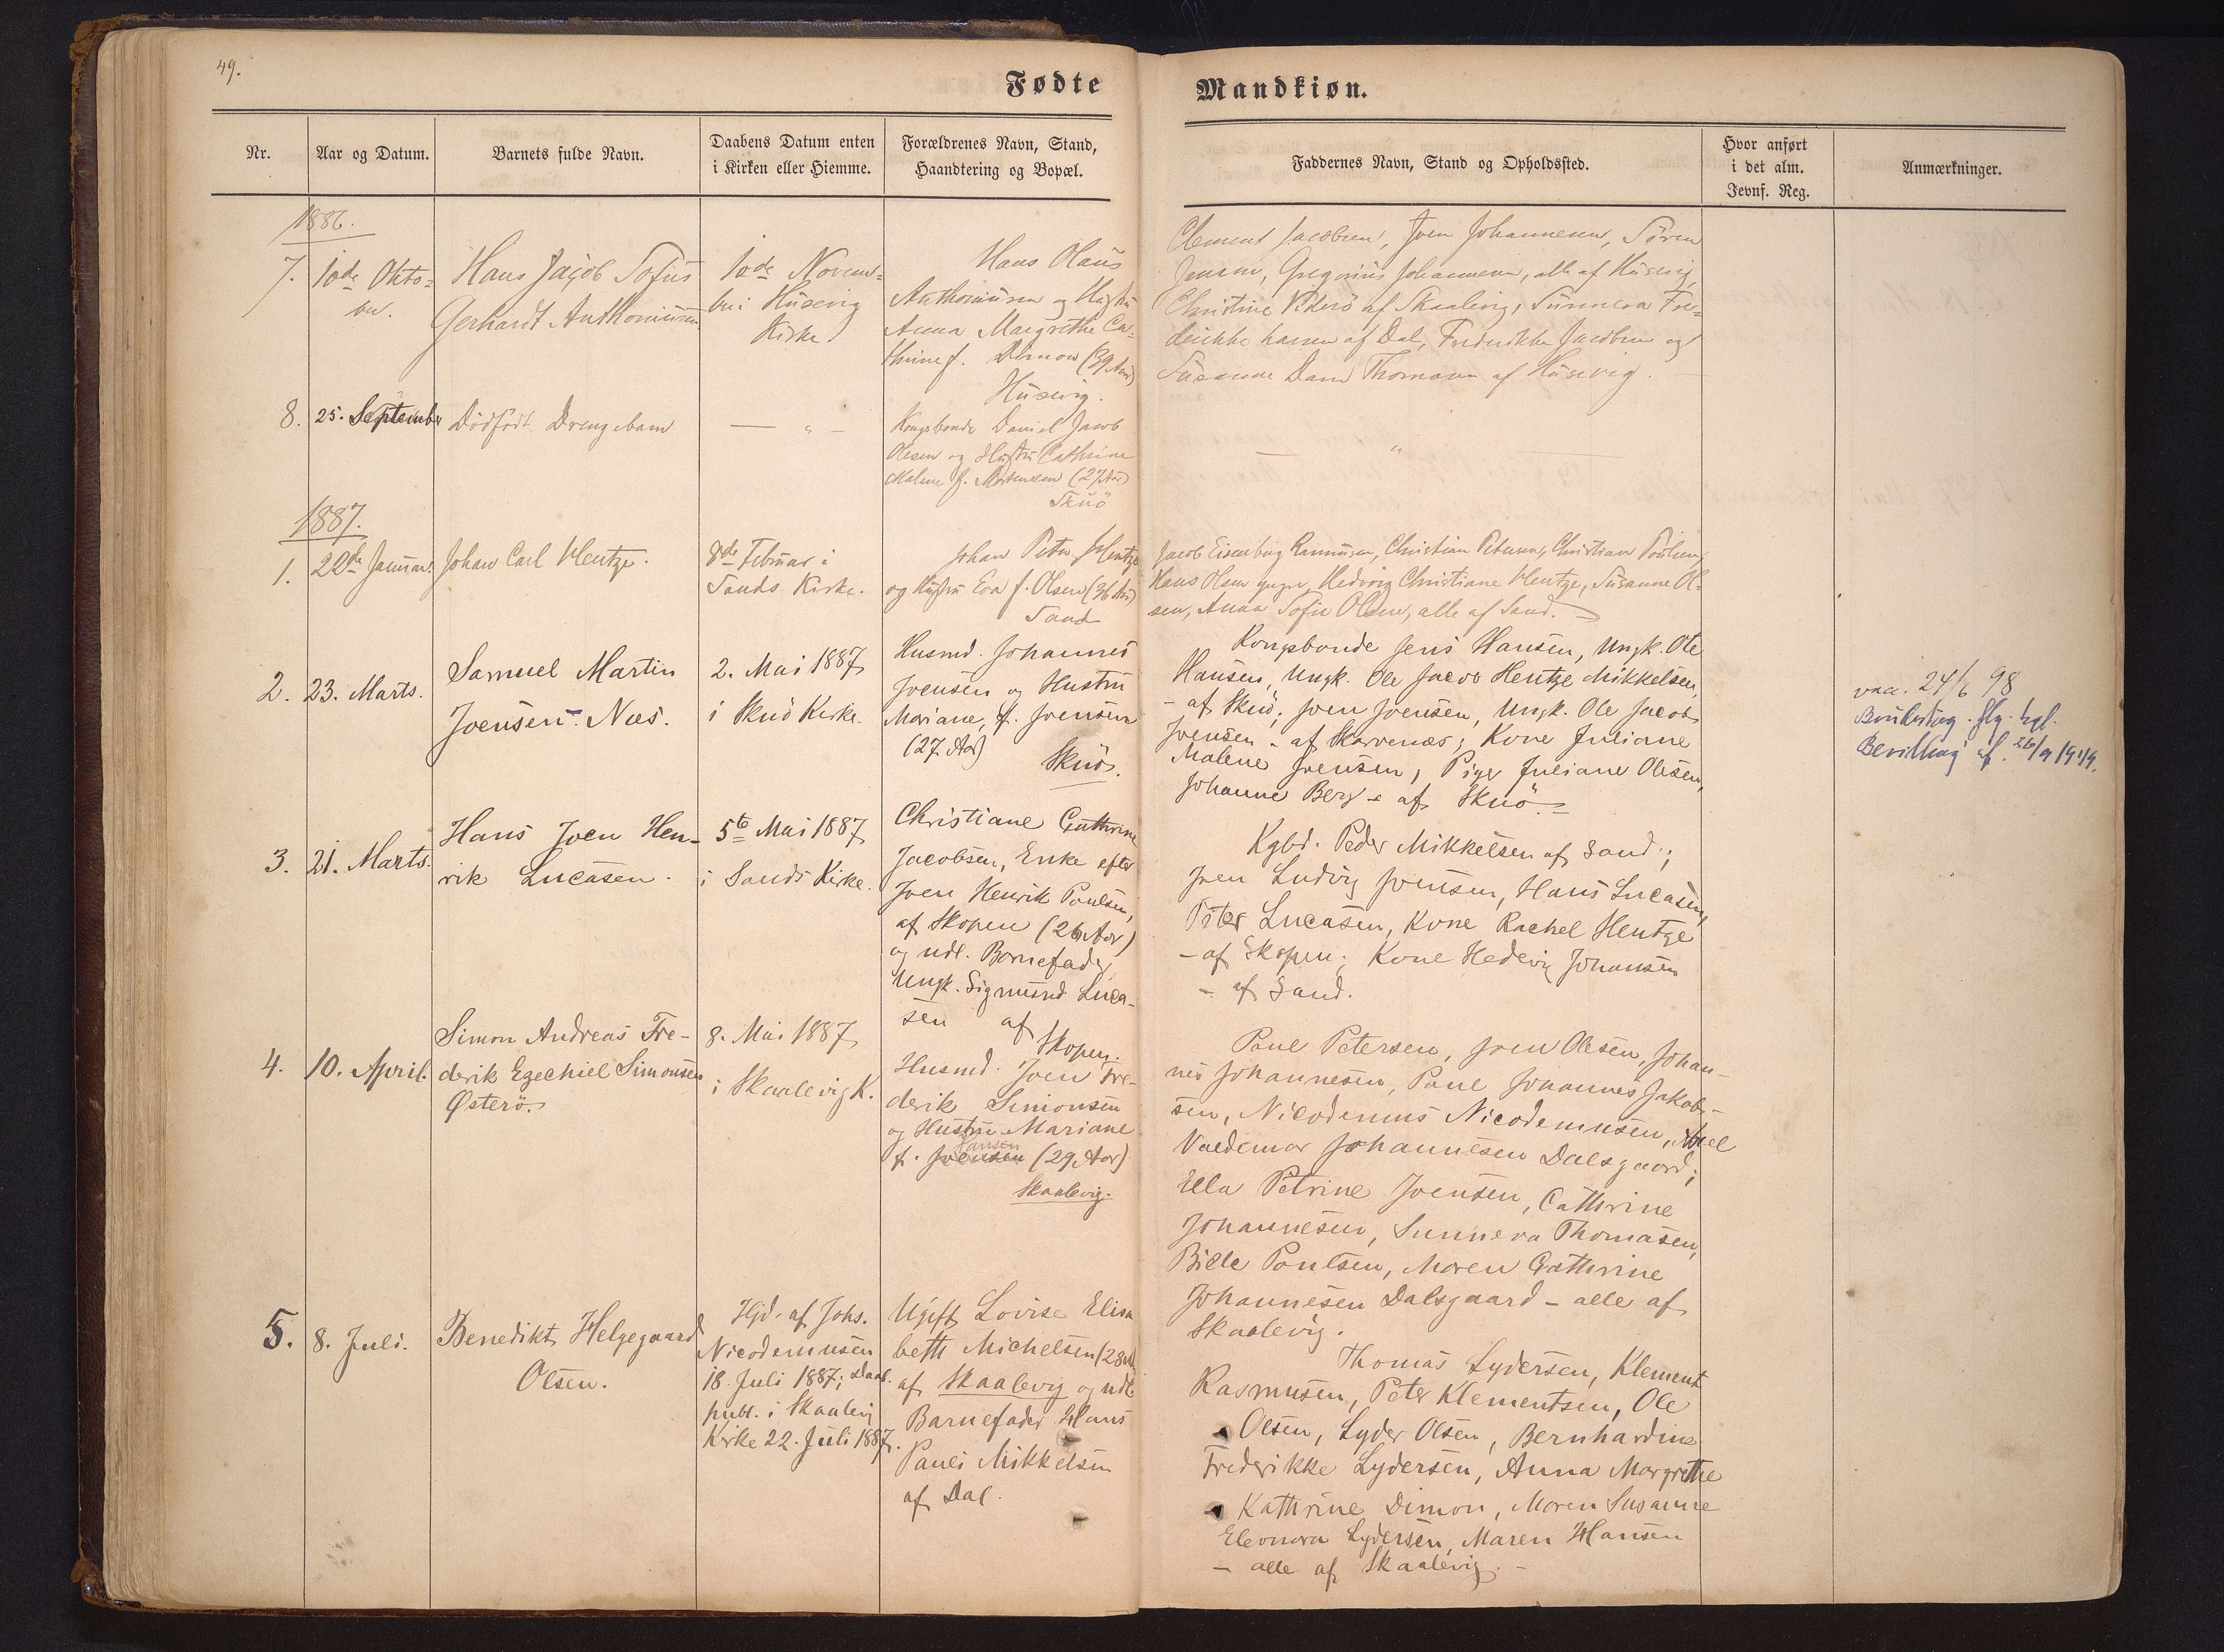 49.
Fødte
Mandkiøn.
Nr.
Aar og Datum.
Barnets fulde Navn.
Daabens Datum enten
i Kirken eller Hiemme.
Forældrenes Navn, Stand,
Haandtering og Bopæl.
Faddernes Navn, Stand og Opholdssted.
Hvor anført
i det alm.
Jevnf. Reg.
Anmærkninger.
1886.
7.
10de Okto-
ber.
Hans Jacob Sofus
Gerhardt Anthoniusen
10de Novem-
ber i Húsevig
Kirke
Hans Olaus
Anthoniusen og Hustru
Anna Margrethe Ca-
thrine f. Dimon (39 Aar)
Húsevig.
Clement Jacobsen, Joen Johannesen, Sören
Jensen, Gregorius Johannesen, alle af Húsevig,
Christine Viderö af Skaalevig, Sunneva Fre-
derikke Hansen af Dal, Frederikke Jacobsen og
Susanne Dam Thomasen af Húsevig.
8.
25. September
Dödfödt Drengebarn
— " —
Kongsbonde Daniel Jacob
Olesen og Hustru Cathrine
Malene f. Mortensen (27 Aar)
Skuö
— " —
1887.
1.
22de Januar.
Johan Carl Hentze.
8de Februar i
Sands Kirke.
Johan Peter Hentze
og Hustru Eva f. Olsen (36 Aar)
Sand
Jacob Eisenberg Rasmusen, Christian Petersen, Christian Poulsen,
Hans Olsen yngre, Hedevig Christiane Hentze, Susanne Ol-
sen, Anna Sofie Olsen, alle af Sand.
2.
23. Marts.
Samuel Martin
Joensen-Næs.
2. Mai 1887
i Skuö Kirke.
Husmd. Johannes
Joensen og Hustru
Mariane, f. Joensen
(27 Aar)
Skuö.
Kongsbonde Jens Hansen, Ungk. Ole
Hansen, Ungk. Ole Jacob Hentze Mikkelsen,
- af Skuö; Joen Joensen, Ungk. Ole Jacob
Joensen - af Skarvenæs; Kone Juliane
Malene Joensen, Piger Juliane Olesen,
Johanne Berg - af Skuö. -
vacc. 24/6 98
Bevilling af 26/9 1919.
3.
21. Marts.
Hans Joen Hen-
rik Lucasen.
5te Mai 1887
i Sands Kirke.
Christiane Cathrine
Jacobsen, Enke efter
Joen Henrik Poulsen,
af Skopen (26 Aar)
og udl. Barnefader
Ungk. Sigmund Luca-
sen af
Skopen.
Kgbd. Peder Mikkelsen af Sand;
Joen Ludvig Joensen, Hans Lucasen,
Peter Lucasen, Kone Rachel Hentze
- af Skopen; Kone Hedevig Johansen
- af Sand.
4.
10. April.
Simon Andreas Fre-
derik Ezechiel Simonsen
Østerö.
8. Mai 1887
i Skaalevig K.
Husmd. Joen Fre-
derik Simonsen
og Hustru Mariane
Hansen
f. Joensen (29 Aar)
Skaalevig.
Poul Petersen, Joen Olesen, Johan-
nes Johannesen, Poul Johannes Jakob-
sen, Nicodemus Nicodemusen, Axel
Valdemar Johannesen Dalsgaard;
Ella Petrine Joensen, Cathrine
Johannesen, Sunneva Thomasen,
Bille Poulsen, Maren Cathrine
Johannesen Dalsgaard - alle af
Skaalevig.
5.
8. Juli.
Benedikt Helgegaard
Olsen.
Hjd. af Johs.
Nicodemusen
18. Juli 1887; Daab.
publ. i Skaalevig
Kirke 22. Juli 1887.
Ugift Lovise Elisa
beth Michelsen (28 Aar)
af Skaalevig og udl.
Barnefader Hans
Pauli Mikkelsen
af Dal.
Thomas Lydersen, Klement
Rasmusen, Peter Klementsen, Ole
Olsen, Lyder Olsen, Bernhardine
Frederikke Lydersen, Anna Margrethe
Kathrine Dimon, Maren Susanne
Eleonora Lydersen, Maren Hansen
- alle af Skaalevig. -